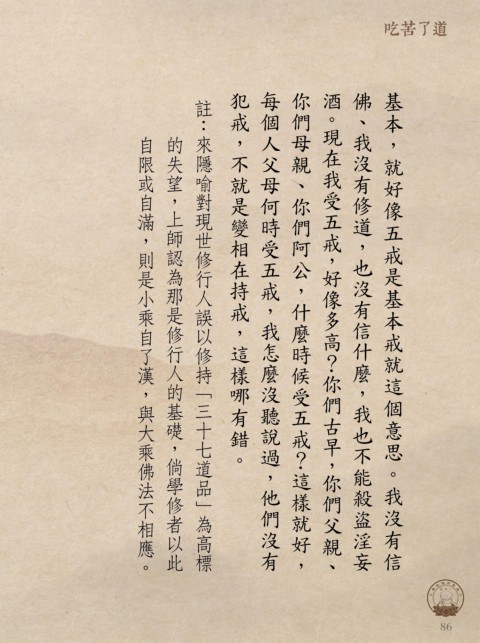 吃苦了道
基本，就好像五戒是基本戒就這個意思。我沒有信
佛、我沒有修道，也沒有信什麼，我也不能殺盜淫妄
酒。現在我受五戒，好像多高？你們古早，你們父親、
你們母親、你們阿公，什麼時候受五戒？這樣就好，
每個人父母何時受五戒，我怎麼沒聽說過，他們沒有
犯戒，不就是變相在持戒，這樣哪有錯。
註：來隱喻對現世修行人誤以修持「三十七道品」為高標
的失望，上師認為那是修行人的基礎，倘學修者以此
自限或自滿，則是小乘自了漢，與大乘佛法不相應。
86